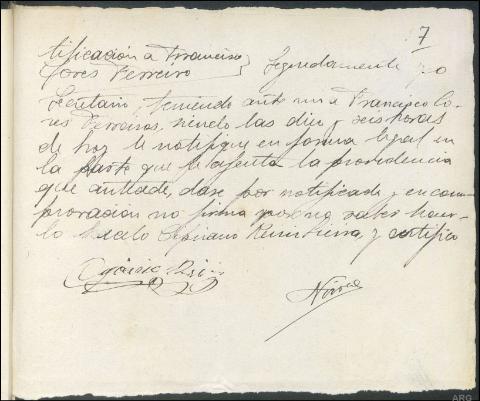 7
tificación a Francisco
Cores Ferreiro } Seguidamente yo
Secretario, teniendo ante mi a Francisco Co-
res Ferreiros, siendo las diez y seis horas
de hoy le notifique en forma legal en
la parte que le afecta la providencia
que antecede, dase por notificado y en com-
provación no firma por no saber hacer-
lo hacelo Cipriano y certifico
ARG